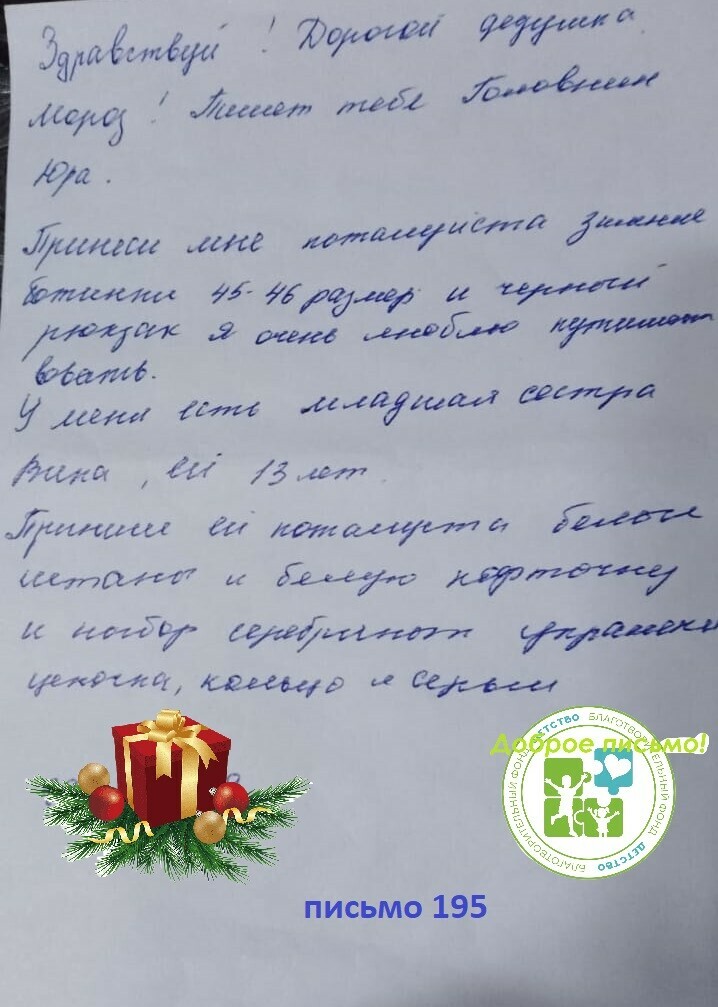 Здравствуй! Дорогой дедушка
Мороз! Пишет тебе Головнин
Юра.
Принеси мне поталуйста зимние
ботинки 45-46 размер и черный
рюкзак я очень люблю путишест
вовать.
У меня есть младшая сестра
Вика, ей 13 лет.
Приниси ей поталуста белые
штаны и белую кофточку
и набор серебряных украшени
цепочка, кольцо и серьги
Доброе письмо!
БЛАГОТВОРИТЕЛЬНЫЙ ФОНД ДЕТСТВО БЛАГОТВОРИТЕЛЬНЫЙ ФОНД ДЕТСТВО
письмо 195